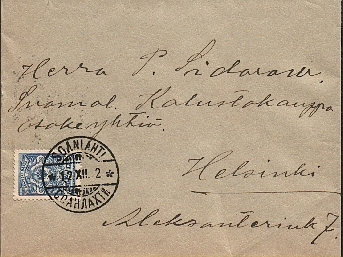 Herra P. Sidorow.
Suomal. Kalustokauppa
Osakeyhtiö.
Helsinki
Aleksanterink 7.
12 XII. 2